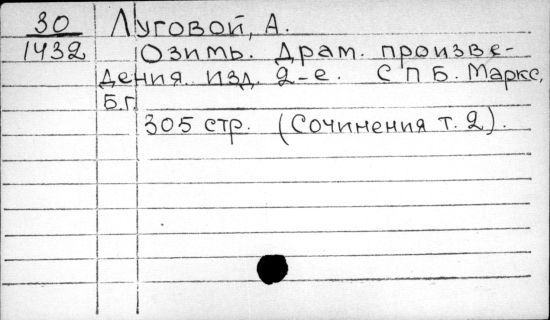 30 Луговой, А.
1432 Озимь. Драт. произве-
дения. Изд. 2-е. СПБ. Маркс,
Б.г.
305 стр. (Сочинения т. 2).